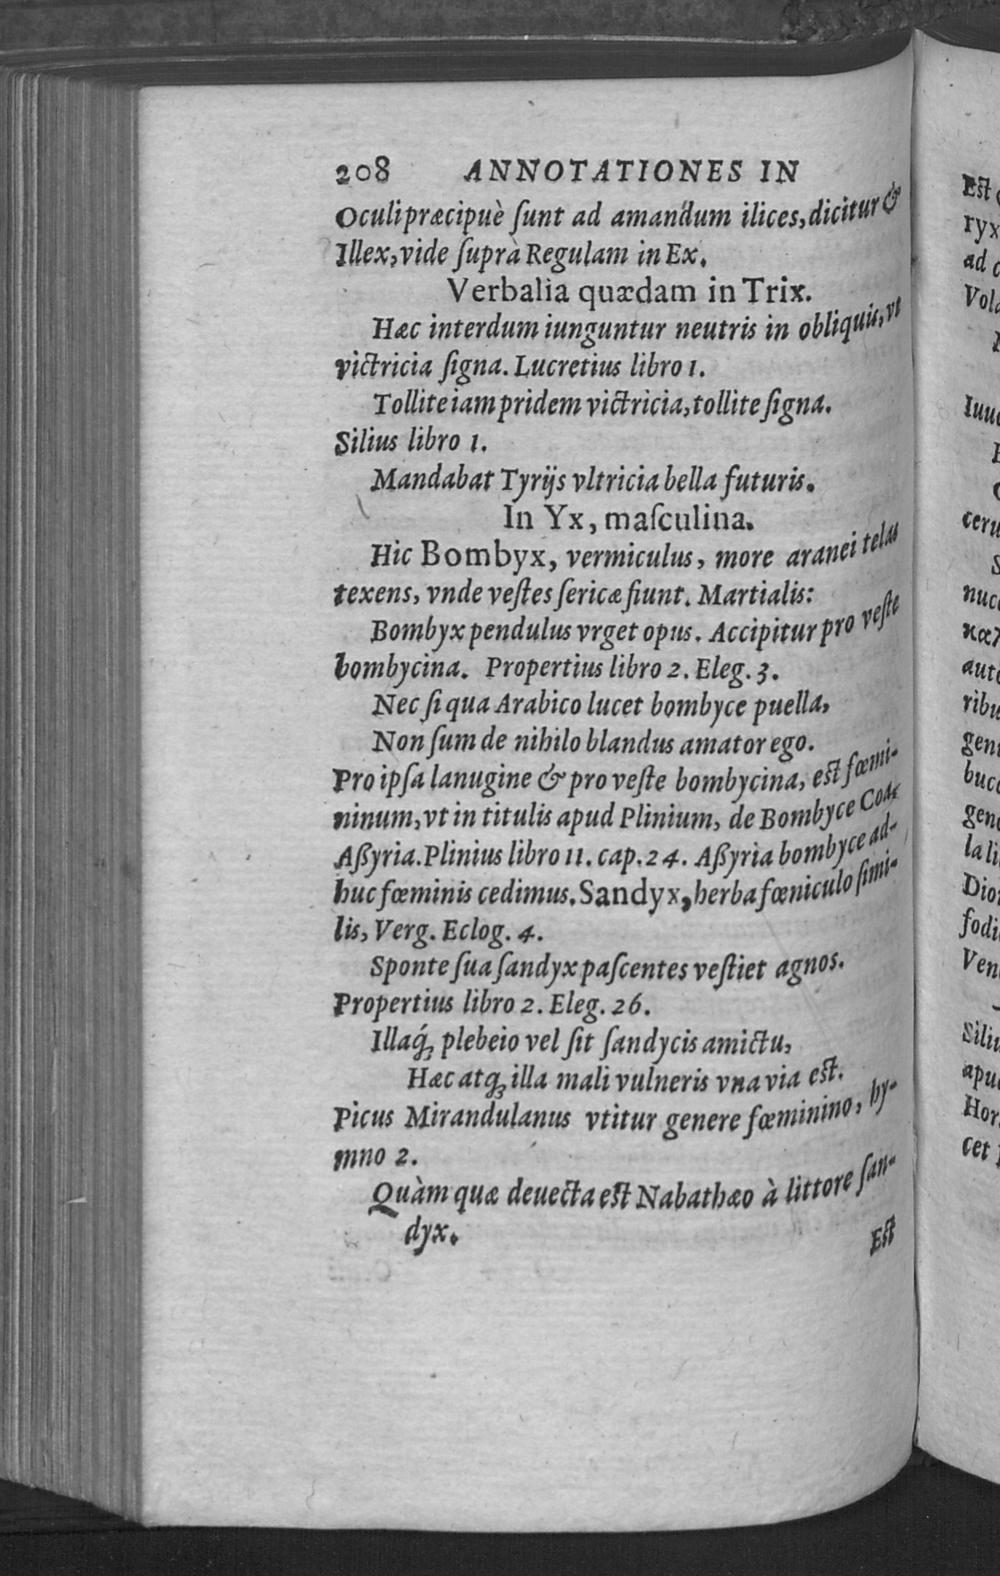 208 ANNOTATIONES IN
Oculi præcipuè ſunt ad amandum ilices, dicitur &
Illex, vide ſuprà Regulam in Ex.
Verbalia quædam in Trix.
Hæc interdum iunguntur neutris in obliquis, vt
victricia ſigna. Lucretius libro 1.
Tollite iampridem victricia, tollite ſigna.
Silius libro 1.
Mandabat Tyrijs vltricia bella futuris.
In Yx, maſculina.
Hic Bombyx, vermiculus, more aranei telas
texens, vnde veſtes ſericæ fiunt. Martialis:
Bombyx pendulus vrget opus. Accipitur pro veſte
bombycina. Propertius libro 2. Eleg. 3.
Nec ſi qua Arabico lucet bombyce puella,
Non ſum de nihilo blandus amator ego.
Pro ipſa lanugine & pro veſte bombycina, eſt fœmi-
ninum, vt in titulis apud Plinium, de Bombyce Coa,
Aßyria. Plinius libro 11. cap. 24. Aßyria bombyce ad-
huc fœminis cedimus. Sandyx, herba fœniculo ſimi-
lis, Verg. Eclog. 4.
Sponte ſua ſandyx paſcentes veſtiet agnos.
Propertius libro 2. Eleg. 26.
Illaq́ꝫ plebeio vel ſit ſandycis amictu,
Hæc atqꝫ illa mali vulneris vna via eſt.
Picus Mirandulanus vtitur genere fœminino, hy-
mno 2.
Quàm quæ deuecta eſt Nabathæo à littore ſan-
dyx.
Eſt
Eſt
ryx
ad
Vola
Iuu
ceru
nuc
καλ
aut
ribu
gen
bucc
gen
la li
Dio
fodi
Ven
Siliu
apu
Hor
cet